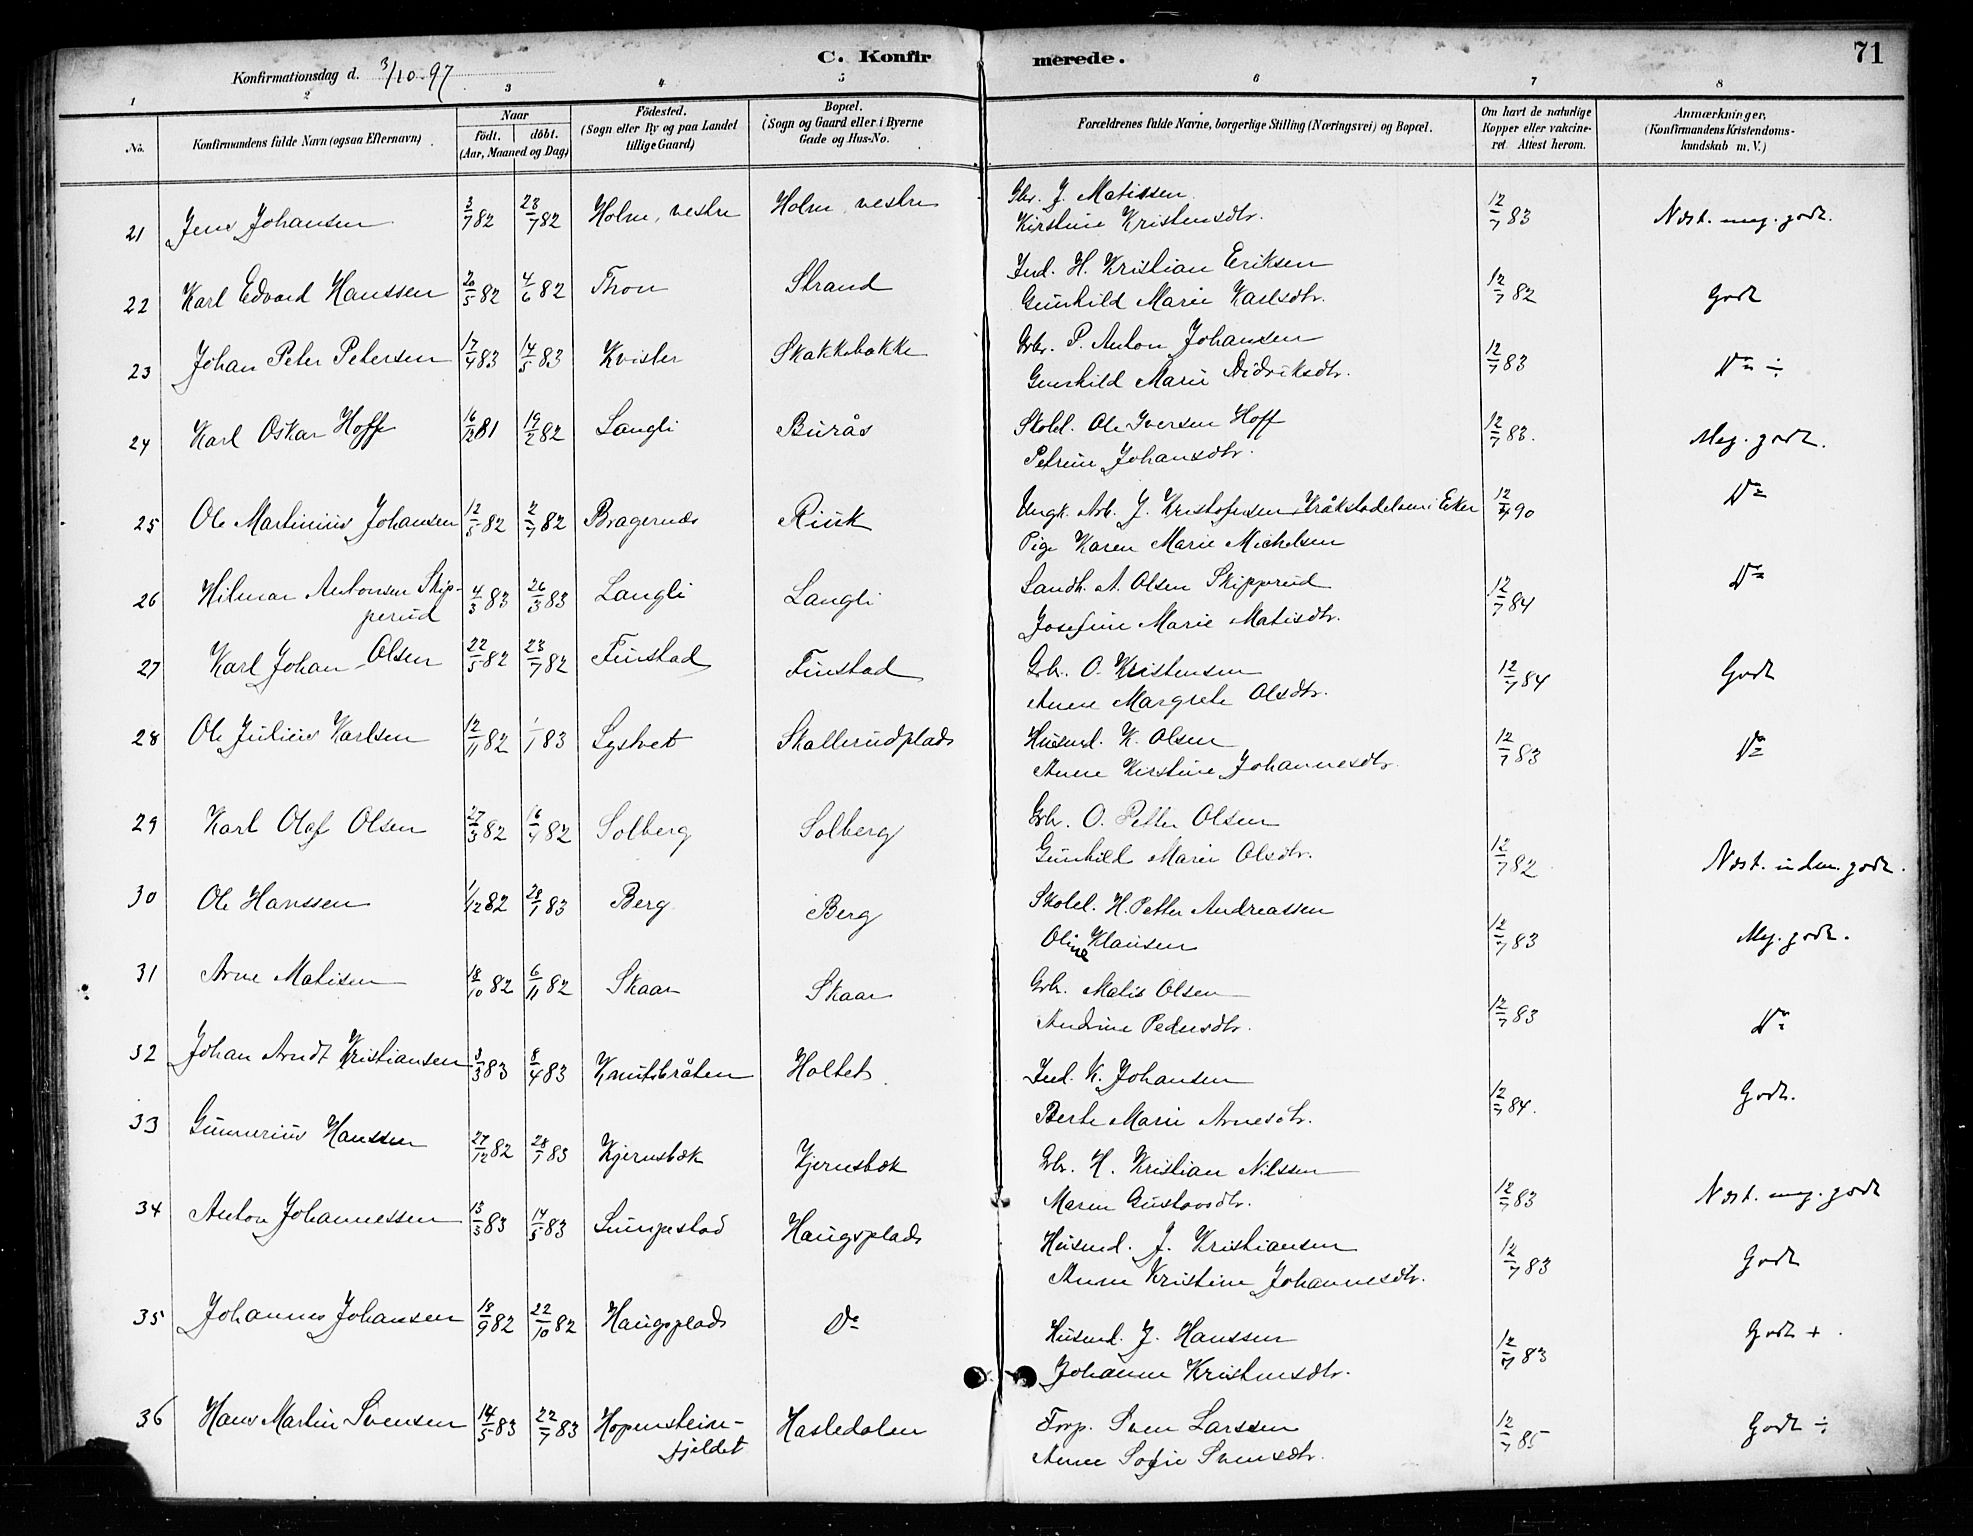 C. Konfirmerede.
71
Konfirmationsdag d. 3/10 97.
1 2 3 4 5 6 7 8
No.
Konfirmandens fulde Navn (ogsaa Efternavn)
Naar
födt. döbt.
(Aar, Maaned og Dag)
Födested.
(Sogn eller By og paa Landet
tillige Gaard)
Bopæl.
(Sogn og Gaard eller i Byerne
Gade og Hus-No.
Forældrenes fulde Navne, borgerlige Stilling (Næringsvei) og Bopæl.
Om havt de naturlige
Kopper eller vakcine-
ret. Attest herom.
Anmærkninger.
(Konfirmandens Kristendoms-
kundskab m. V.)
21 Jens Johansen 3/7 82 23/7 82 Holm, vestre Holm, vestre Gbr. J. Matissen 12/7 83 Næst. meg. godt.
Kirstine Kristensdtr.
22 Karl Edvard Hanssen 20/5 82 4/6 82 Thon Strand Ind. H. Kristian Eriksen 12/7 82 Godt
Gunhild Marie Karlsdtr.
23 Johan Peter Petersen 17/4 83 14/5 83 Kvister Skakkebakke Gbr. P. Anton Johansen 12/7 83 Do ÷
Gunhild Marie Didriksdtr.
24 Karl Oskar Hoff 16/12 81 19/2 82 Langli Burås Skolel. Ole Iversen Hoff 12/7 83. Meg. godt.
Petrine Johansdtr.
25 Ole Martinius Johansen 12/5 82 2/7 82 Bragernæs Riisk Ungk. Arb. J. Kristofersen Kråkstadelven i Eker 12/4 90 Do
Pige Karen Marie Michelsen
26 Hilmar Antonsen Skip- 4/3 83 26/3 83 Langli Langli Landh. A. Olsen Skipperud 12/7 84 Do
perud Josefine Marie Matisdtr.
27 Karl Johan Olsen 22/5 82 23/7 82 Finstad Finstad Gbr. O. Kristensen 12/7 84 Godt
Anne Margrete Olsdtr.
28 Ole Julius Karlsen 12/11 82 1/1 83 Lystvet Skallerudplads Husmd. K. Olsen 12/7 83 Do
Anne Kirstine Johannesdtr.
29 Karl Olaf Olsen 27/3 82 16/4 82 Solberg Solberg Gbr. O. Petter Olsen 12/7 82 Næst. inden godt.
Gunhild Marie Olsdtr.
30 Ole Hanssen 1/12 82 28/1 83 Berg Berg Skolel. H. Petter Andreassen 12/7 83 Meg. godt.
Oline Klausen
31 Arne Matisen 18/10 82 6/11 82 Skaar Skaar Gbr. Matis Olsen 12/7 83 Do
Andrine Pedersdtr.
32 Johan Arndt Kristiansen 3/3 83 8/4 83 Knutsbråten Holtet Ind. K. Johansen 12/7 84. Godt.
Berte Marie Arnesdtr.
33 Gunnerius Hanssen 27/12 82 28/1 83 Kjernsbæk Kjernsbæk Gbr. H. Kristian Nilssen 12/7 83 Næst. meg. godt
Maren Gustavsdtr.
34 Anton Johannessen 13/3 83 14/5 83 Lumpestad Haugsplads Husmd. J. Kristiansen 12/7 83 Godt
Anne Kristine Johannesdtr.
35 Johannes Johansen 18/9 82 22/10 82 Haugsplads Do Husmd. J. Hanssen 12/7 83 Godt +
Johanne Kristensdtr.
36 Hans Martin Svensen 14/5 83 22/7 83 Hopensteine- Hasledalen Forp. Sven Larssen 12/7 85 Godt ÷
fjeldet Anne Sofie Svensdtr.